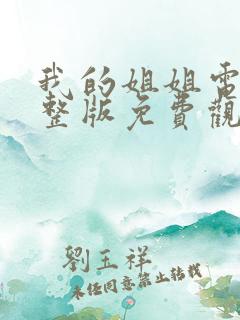 我的姐姐電
整版免費觀
劉玉祥
未经同意禁止转载